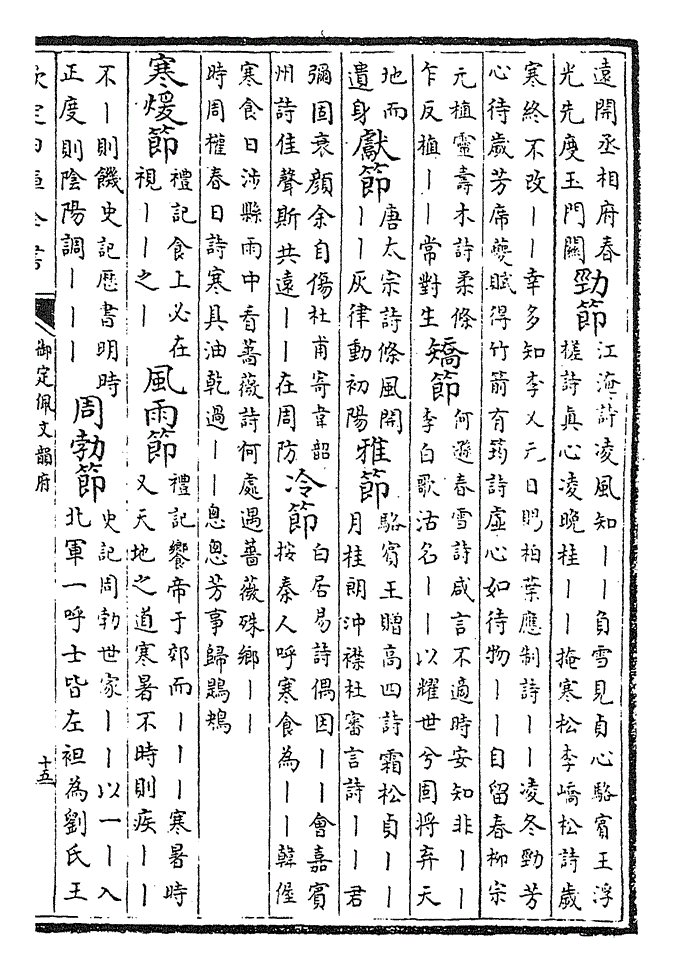 遠開丞相府春
光先度玉門關
勁節
江淹詩凌風知丨丨負雪見貞心駱賓王浮
槎詩真心凌晚桂丨丨掩寒松李嶠松詩歲
寒終不改丨丨幸多知李乂元日賜柏葉應制詩丨丨凌冬勁芳
心待歲芳席夔賦得竹箭有筠詩虛心如待物丨丨自留春柳宗
元植靈壽木詩柔條
乍反植丨丨常對生
矯節
何遜春雪詩咸言不適時安知非丨丨
李白歌沽名丨丨以耀世兮固將弃天
地而
遺身
獻節
唐太宗詩條風開
丨丨灰律動初陽
雅節
駱賓王贈高四詩霜松貞丨丨
月桂朗沖襟杜審言詩丨丨君
彌固衰顔余自傷杜甫寄韋韶
州詩佳聲斯共遠丨丨在周防
冷節
白居易詩偶因丨丨會嘉賓
按秦人呼寒食為丨丨韓偓
寒食日涉縣雨中看薔薇詩何處遇薔薇殊鄉丨丨
時周權春日詩寒具油乾過丨丨悤悤芳事歸鶗鴂
寒煖節
禮記食上必在
視丨丨之丨
風雨節
禮記饗帝于郊而丨丨丨寒暑時
又天地之道寒暑不時則疾丨丨
不丨則饑史記厯書明時
正度則陰陽調丨丨丨
周勃節
史記周勃世家丨丨以一丨入
北軍一呼士皆左袒為劉氏王
欽定四庫全書
御定佩文韻府
十五